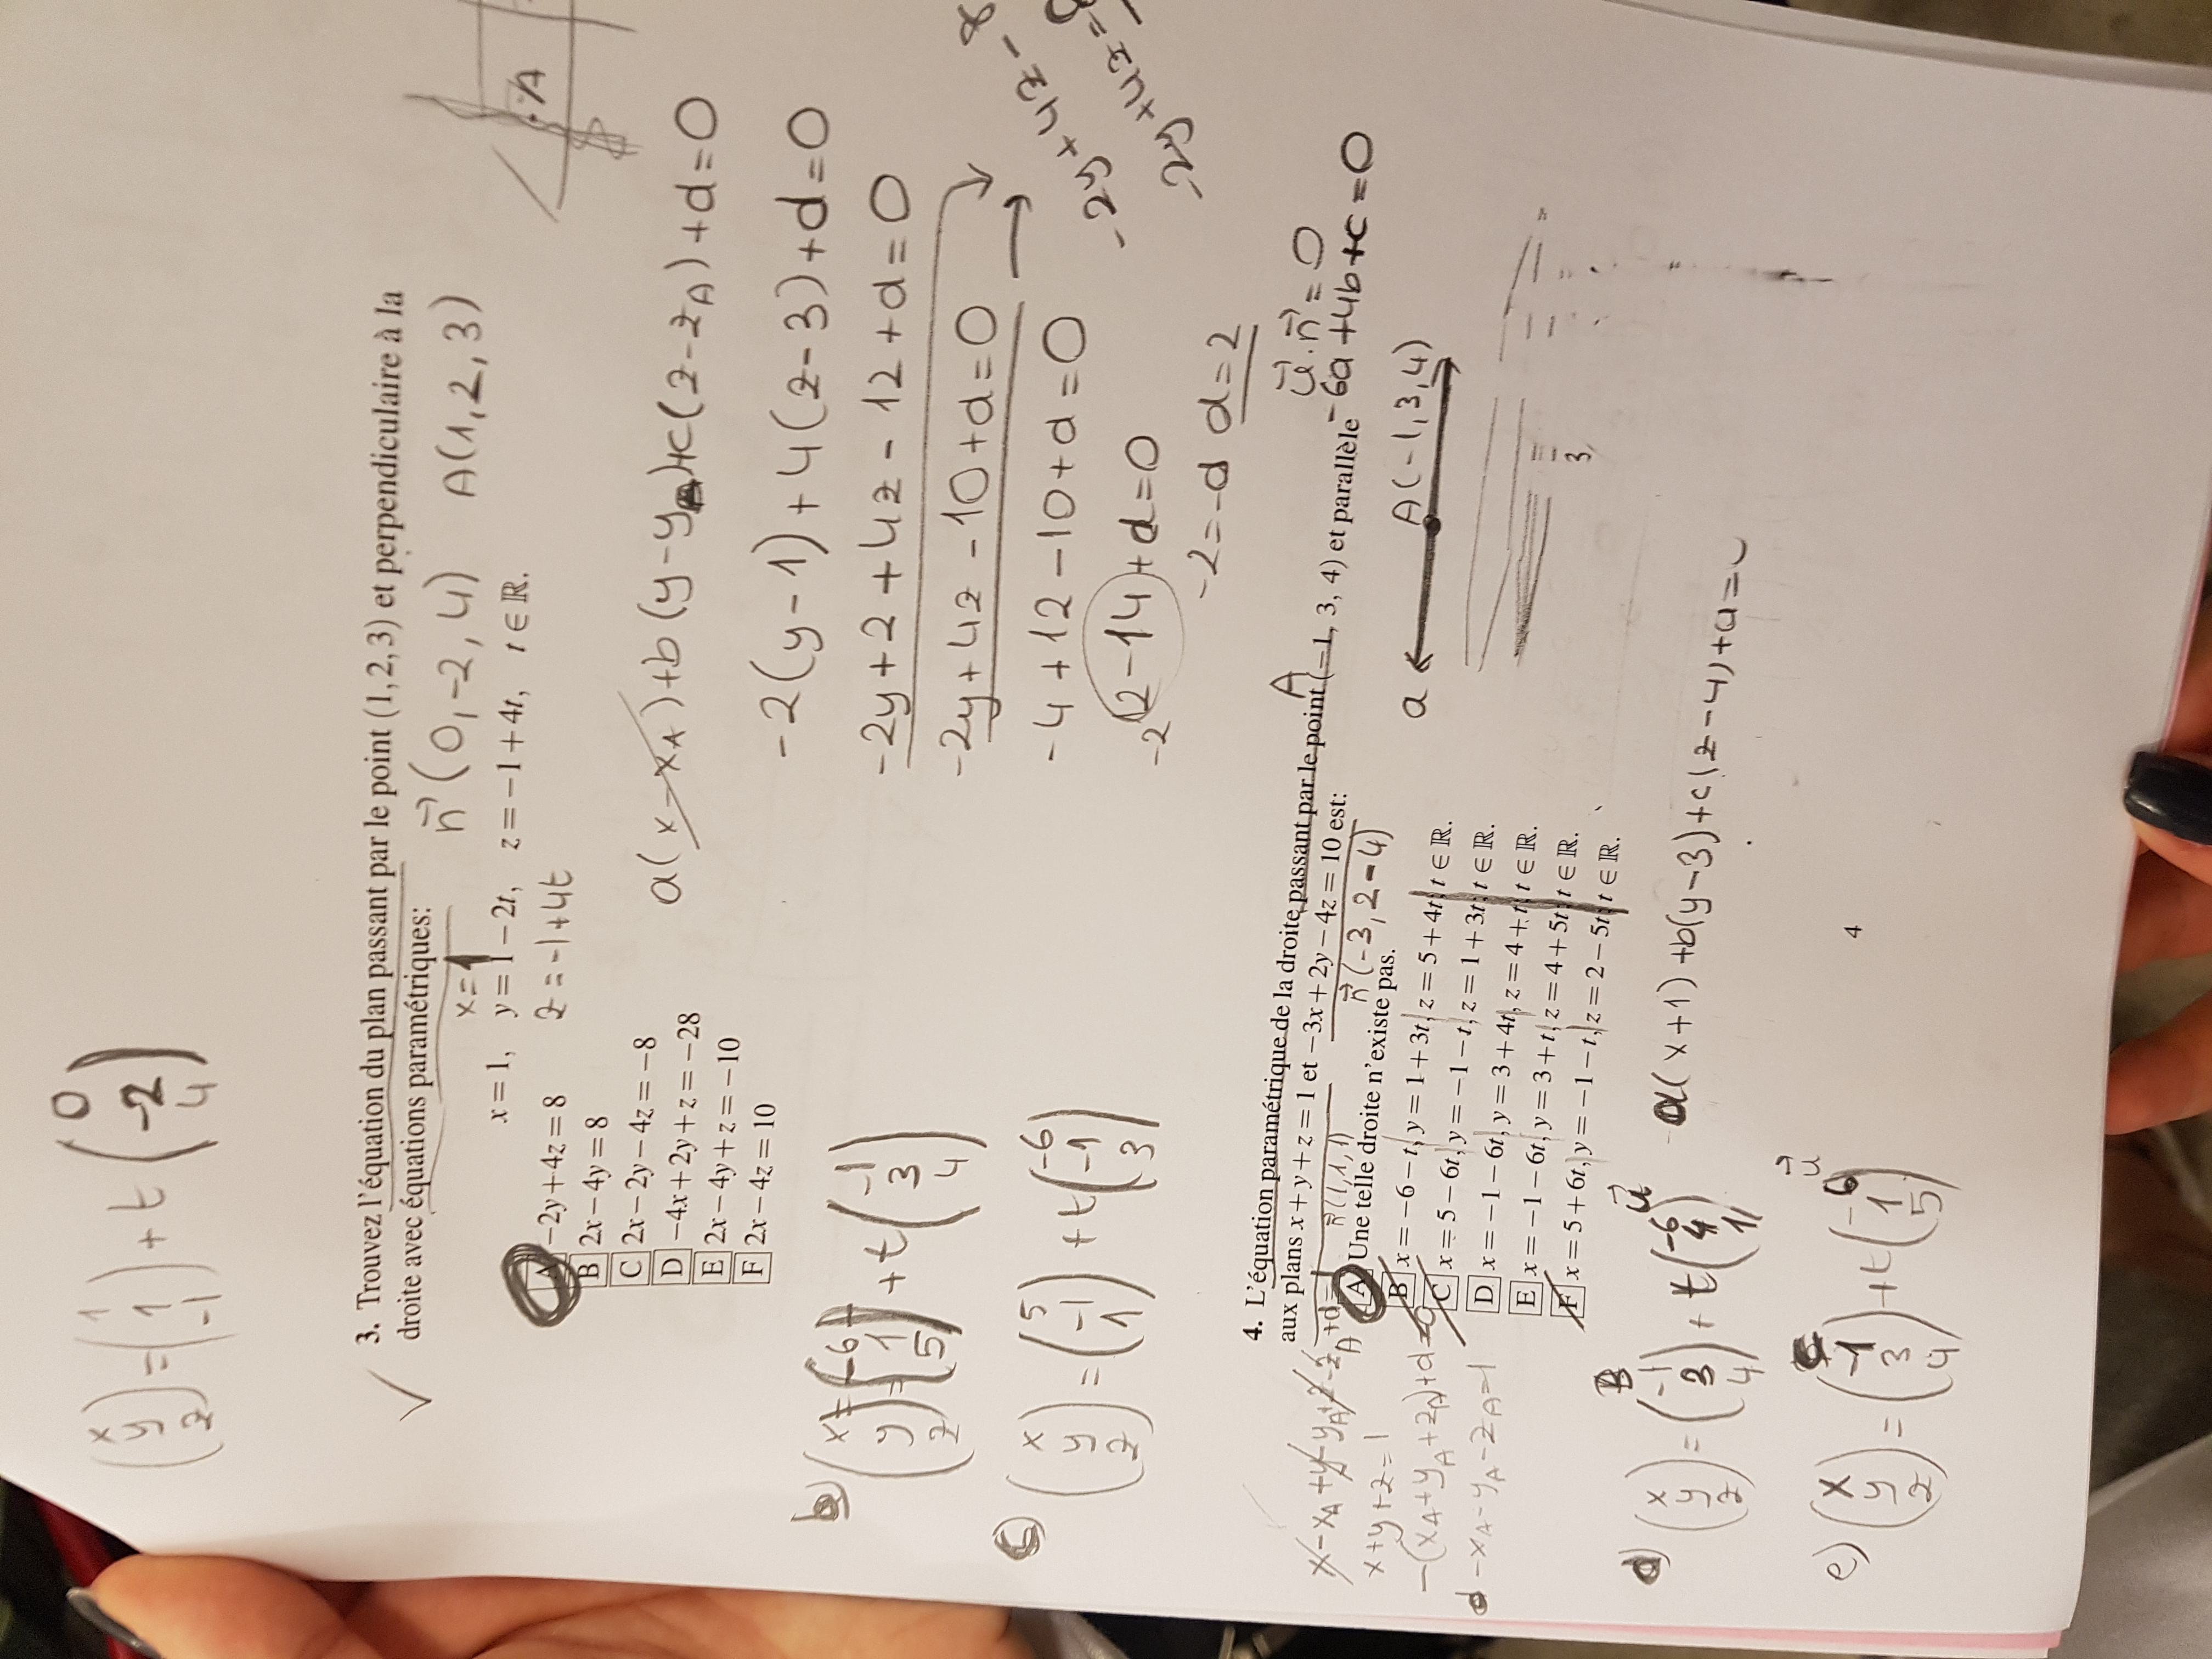 (x y z) = (1 1 -1) + t (0 -2 4)
3. Trouvez l'équation du plan passant par le point (1, 2, 3) et perpendiculaire à la
droite avec équations paramétriques:
n⃗ (0, -2, 4) A(1, 2, 3)
x=1
x = 1, y = 1 − 2t, z = −1 + 4t, t ∈ ℝ.
z = -1+4t
A −2y + 4z = 8
B 2x − 4y = 8
C 2x − 2y − 4z = −8
D −4x + 2y + z = −28
E 2x − 4y + z = −10
F 2x − 4z = 10
A
a(x-xA)+b(y-yA)+c(z-zA)+d=0
-2(y-1)+4(z-3)+d=0
-2y+2+4z-12+d=0
-2y+4z-10+d=0
-4+12-10+d=0
2-14+d=0
-2
-2=-d d=2
-2y+4z-8
-2y+4z=
b) (x y z) = (-6 1 5) + t (-1 3 4)
c) (x y z) = (5 -1 1) + t (-6 -1 3)
4. L'équation paramétrique de la droite passant par le point (−1, 3, 4) et parallèle
aux plans x + y + z = 1 et −3x + 2y − 4z = 10 est:
A
u⃗.n⃗=0
-6a+4b+c=0
n⃗(1,1,1) n⃗(-3,2-4)
A Une telle droite n'existe pas.
B x = −6 − t, y = 1 + 3t, z = 5 + 4t, t ∈ ℝ.
C x = 5 − 6t, y = −1 − t, z = 1 + 3t, t ∈ ℝ.
D x = −1 − 6t, y = 3 + 4t, z = 4 + t, t ∈ ℝ.
E x = −1 − 6t, y = 3 + t, z = 4 + 5t, t ∈ ℝ.
F x = 5 + 6t, y = −1 − t, z = 2 − 5t, t ∈ ℝ.
a A(-1,3,4)
3,
x-xA+y-yA+z-zA+d=1
x+y+z=1
-(xA+yA+zA)+d=0
d-xA-yA-zA=1
a(x+1)+b(y-3)+c(z-4)+d=0
d) (x y z) = (-1 3 4) + t (-6 4 1) u⃗
e) (x y z) = (-1 3 4) + t (-6 1 5) u⃗
4